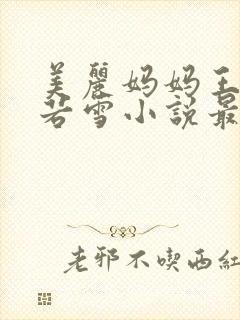 美麗妈妈王
若雪小説最
老邪不喫西紅